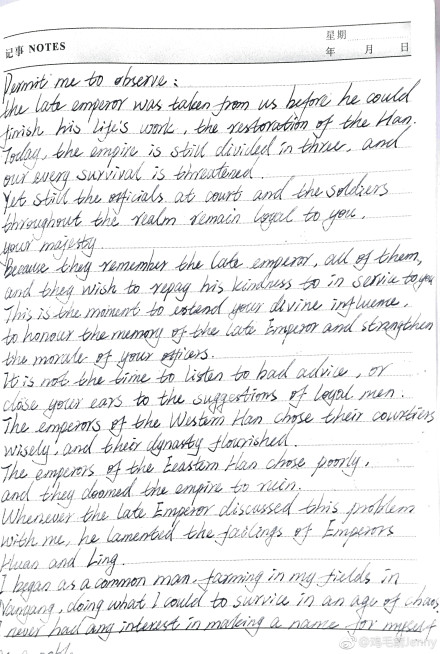 记事 NOTES
星期
年 月 日
Permit me to observe:
the late emperor was taken from us before he could
finish his life's work, the restoration of the Han.
Today, the empire is still divided in three, and
our every survival is threatened.
Yet still the officials at court and the soldiers
throughout the realm remain loyal to you,
your majesty.
Because they remember the late emperor, all of them,
and they wish to repay his kindness to in service to you
This is the moment to extend your divine influence,
to honour the memory of the late Emperor and strengthen
the morale of your officers.
It is not the time to listen to bad advice, or
close your ears to the suggestions of loyal men.
The emperors of the Western Han chose their courtiers
wisely, and their dynasty flourished.
The emperors of the Eeastern Han chose poorly,
and they doomed the empire to ruin.
Whenever the late Emperor discussed this problem
with me, he lamented the failings of Emperors
Huan and Ling.
I began as a common man, farming in my fields in
Nangang, doing what I could to survive in an age of chaos,
I never had any interest in making a name for myself
Jenny